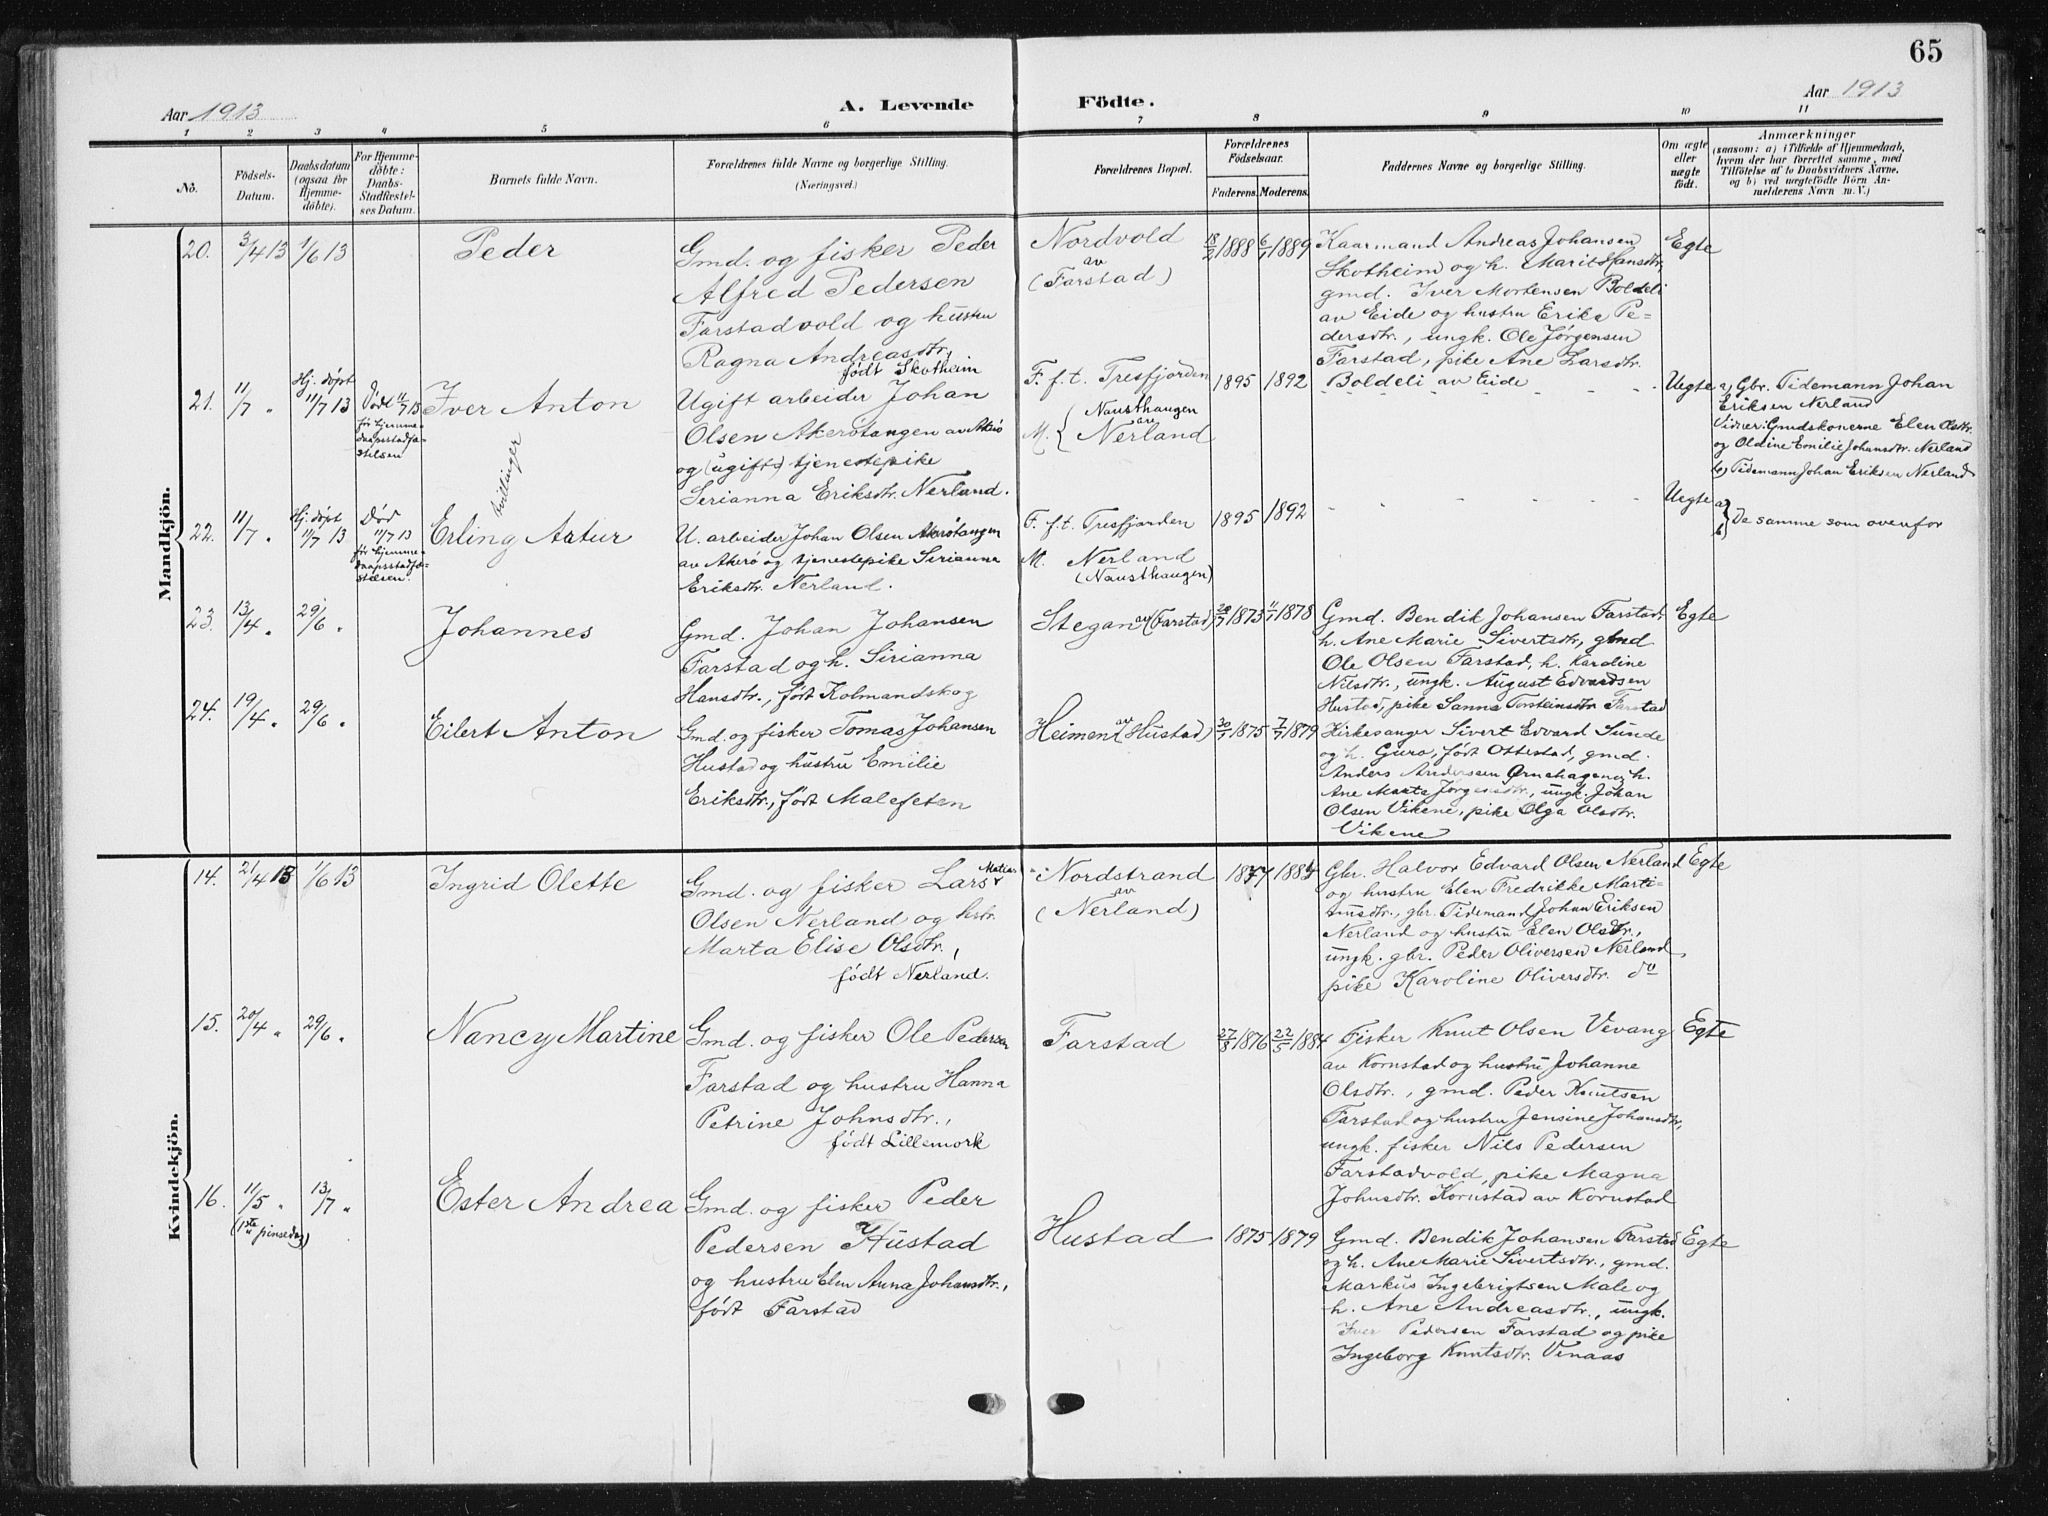 65
Aar 1913
A. Levende Födte.
Aar 1913
1 2 3 4 5 6 7 8 9 10 11
No.
Födsels-Datum.
Daabsdatum (ogsaa for Hjemme-döbte).
For Hjemme-döbte: Daabs-Stadfæstel-ses Datum.
Barnets fulde Navn.
Forældrenes fulde Navne og borgerlige Stilling.
(Næringsvei.)
Forældrenes Bopæl.
Forældrenes Födselsaar.
Faderens. Moderens.
Faddernes Navne og borgerlige Stilling.
Om ægte eller uægte født.
Anmærkninger
(saasom: a) i Tilfælde af Hjemmedaab,
hvem der har forrettet samme, med
Tilföielse af to Daabsvidners Navne,
og b) ved uægtefödte Börn An-
melderens Navn m. V.)
Mandkjön.
20. 3/4 13 1/6 13
Peder
Gmd. og fisker Peder
Alfred Pedersen
Farstadvold og hustru
Ragna Andreasdtr.,
født Skotheim
Nordvold
av
(Farstad)
18/2 1888 6/1 1889
Kaarmand Andreas Johansen
Skotheim og h. Marit Hansdtr,
gmd. Iver Mortensen Boldeli
av Eide og hustru Erika Pe-
dersdtr., ungk. Ole Jørgensen
Farstad, pike Ane Larsdtr.
Boldeli av Eide
Egte
21. 11/7 "
Hj. døpt
11/7 13
Død 11/7 13
før hjemme-
daapsstadfæ-
stelsen
Iver Anton
tvillinger
Ugift arbeider Johan
Olsen Akerøtangen av Akerø
og (ugift) tjenestepike
Serianna Eriksdtr. Nerland.
F. f. t. Tresfjorden
M. { Nausthaugen
av
Nerland
1895 1892
Uegte
a) Gbr. Tidemann Johan
Eriksen Nerland
Vidner: Gmdskonerne Elen Olsdtr.
og Oldine Emilie Johansdtr. Nerland
b) Tidemann Johan Eriksen Nerland
22. 11/7 "
Hj. døpt
11/7 13
Død
11/7 13
før hjemme-
daapsstadfæ-
stelsen.
Erling Artur
U. arbeider Johan Olsen Akerøtangen
av Akerø og tjenestepike Serianna
Eriksdtr. Nerland.
F. f. t. Tresfjorden
M. Nerland
(Nausthaugen)
1895 1892
Uegte
a
b } De samme som ovenfor
23. 13/4 " 29/6 "
Johannes
Gmd. Johan Johansen
Farstad og h. Serianna
Hansdtr., født Kolmandskog
Stegan av (Farstad)
1873 1878
Gmd. Bendik Johansen Farstad,
h. Ane Marie Sivertsdtr, gmd
Ole Olsen Farstad, h. Karoline
Nilsdtr., ungk. August Edvardsen
Hustad, pike Sanna Torsteinsdtr Farstad
Egte
24. 19/4 " 29/6 "
Eilert Anton
Gmd. og fisker Tomas Johansen
Hustad og hustru Emilie
Eriksdtr., født Malefeten
Heimen (av Hustad)
1875 1879
Kirkesanger Sivert Edvard Sunde
og h. Guro, født Ottestad, gmd.
Anders Andersen Ørnehagen og h.
Ane Marta Jørgensdtr., ungk. Johan
Olsen Vikene, pike Olga Olsdtr.
Vikene
Kvindekjön.
14. 21/4 13 1/6 13
Ingrid Olette
Gmd. og fisker Lars Matias
Olsen Nerland og hstr.
Marta Elise Olsdtr.,
født Nerland.
Nordstrand
av
(Nerland)
1877 1884
Gbr. Halvor Edvard Olsen Nerland
og hustru Elen Fredrikke Marti-
nusdtr., gbr. Tidemand Johan Eriksen
Nerland og hustru Elen Olsdtr.,
ungk. gbr. Peder Oliversen Nerland,
pike Karoline Oliversdtr. do
Egte
15. 20/4 " 29/6 "
Nancy Martine
Gmd. og fisker Ole Pedersen
Farstad og hustru Hanna
Petrine Johnsdtr.,
født Lillemork
Farstad
27/8 1876 22/5 1884
Fisker Knut Olsen Vevang
av Kornstad og hustru Johanne
Olsdtr., gmd. Peder Knutsen
Farstad og hustru Jensine Johansdtr,
ungk. fisker Nils Pedersen
Farstadvold, pike Magna
Johnsdtr. Kornstad av Kornstad
Egte
16. 11/5 " 13/7 "
(1ste pinsedag)
Ester Andrea
Gmd. og fisker Peder
Pedersen Hustad
og hustru Elen Anna Johansdtr.,
født Farstad
Hustad
1875 1879
Gmd. Bendik Johansen Farstad
og h. Ane Marie Sivertsdtr., gmd.
Markus Ingebrigtsen Male og
h. Ane Andreasdtr., ungk.
Iver Pedersen Farstad og pike
Ingeborg Knutsdtr. Venaas
Egte